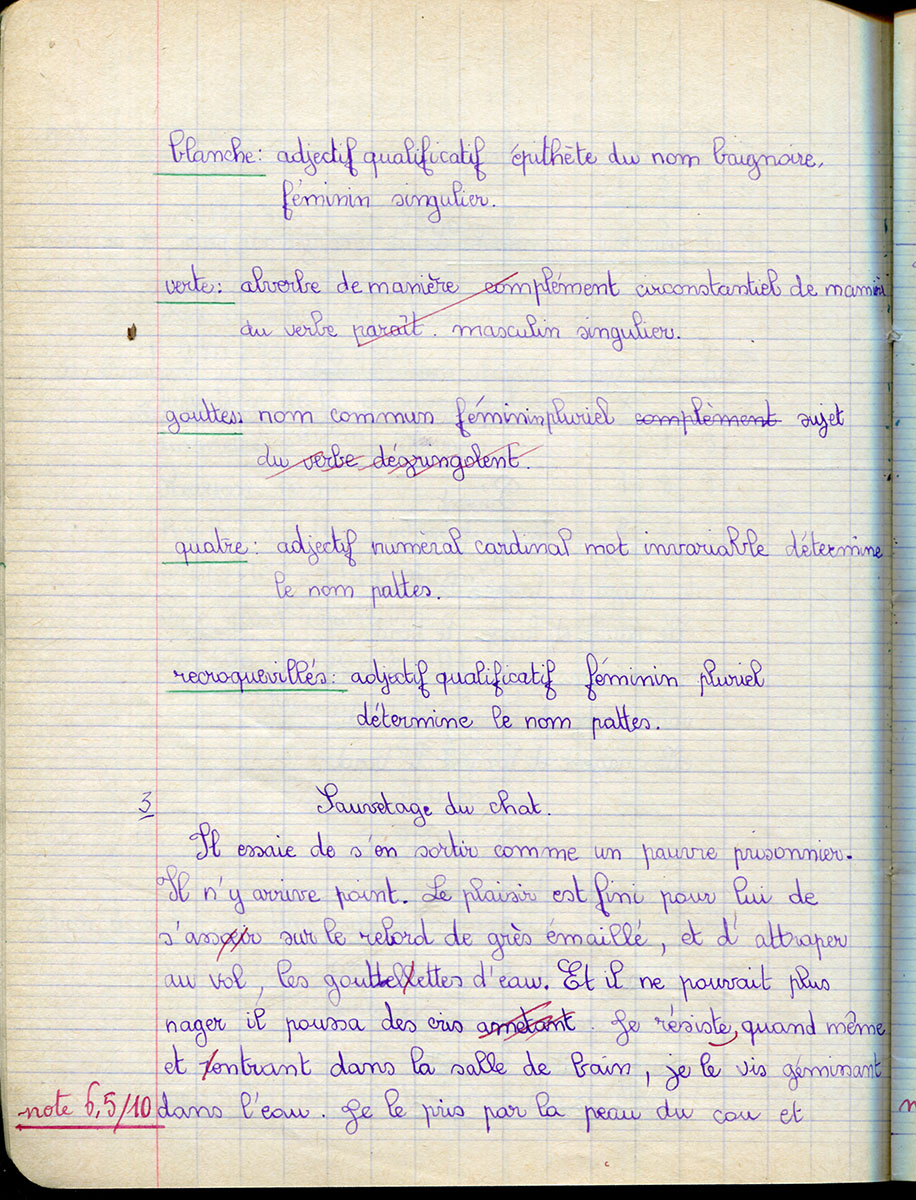 blanche: adjectif qualificatif épithète du nom baignoire,
féminin singulier.
verte: alverbe de manière complément circonstantiel de mani
du verbe paraît. masculin singulier.
gouttes: nom commun féminin pluriel complèment sujet
du verbe dégringolent.
quatre: adjectif numéral cardinal mot invariable détermine
le nom pattes.
recroquevillés: adjectif qualificatif féminin pluriel
détermine le nom pattes.
3 Sauvetage du chat.
Il essaie de s'en sortir comme un pauvre prisonnier.
Il n'y arrive point. Le plaisir est fini pour lui de
s'assoir sur le rebord de grès émaillé, et d'attraper
au vol, les gouttelettes d'eau. Et il ne pouvait plus
nager il poussa des cris Je résiste, quand même
et entrant dans la salle de bain, je le vis gémissant
note 6,5/10 dans l'eau. Je le pris par la peau du cou et